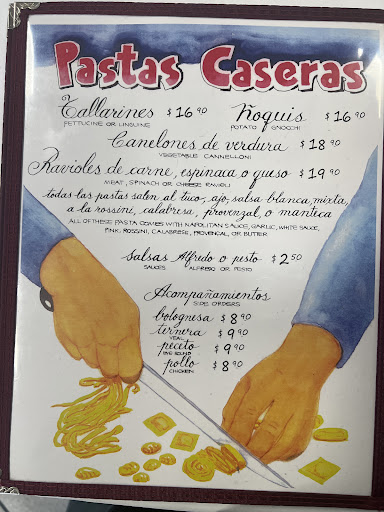 Pastas Caseras
Tallarines $16.90 Ñoquis $16.90
FETTUCINE OR LINGUINE POTATO GNOCCHI
Canelones de verdura $18.90
VEGETABLE CANNELLONI
Ravioles de carne, espinaca o queso $19.90
MEAT, SPINACH OR CHEESE RAVIOLI
todas las pastas salen al tuco, ajo, salsa blanca, mixta,
a la rossini, calabresa, provenzal, o manteca
ALL OF THESE PASTA COMES WITH NAPOLITAN SAUCE, GARLIC, WHITE SAUCE,
PINK, ROSSINI, CALABRESE, PROVENCAL, OR BUTTER
Salsas Alfredo o pesto $2.50
SAUCES ALFREDO OR PESTO
Acompañamientos
SIDE ORDERS
bolognesa $8.90
ternera $9.90
VEAL
peceto $9.90
EYE ROUND
pollo $8.90
CHICKEN